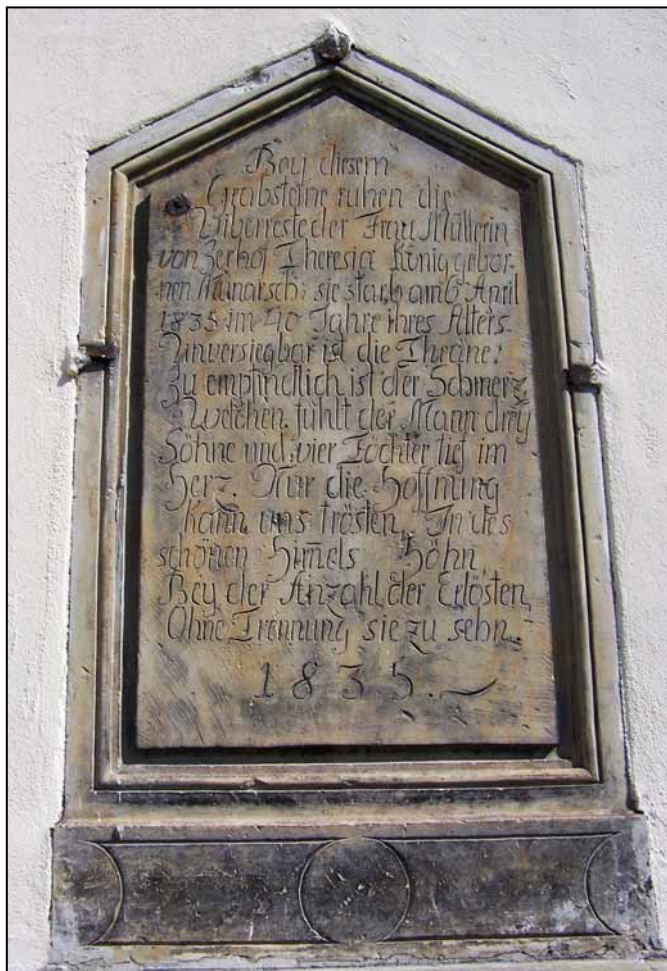 Bey diesem
Grabsteine ruhen die
Uiberreste der Frau Müllerin
von Zerhof Theresia König gebor-
nen Munarsch; sie starb am 6 April
1835 im 40 Jahre ihres Alters.
Unversiegbar ist die Thräne:
Zu empfindlich ist der Schmerz
Welchen fühlt der Mann drey
Söhne und vier Töchter tief im
Herz. Nur die Hoffnung
kann uns trösten, In des
schönen Him̄els Höhn,
Bey der Anzahl der Erlösten,
Ohne Trennung sie zu sehn.
1835.